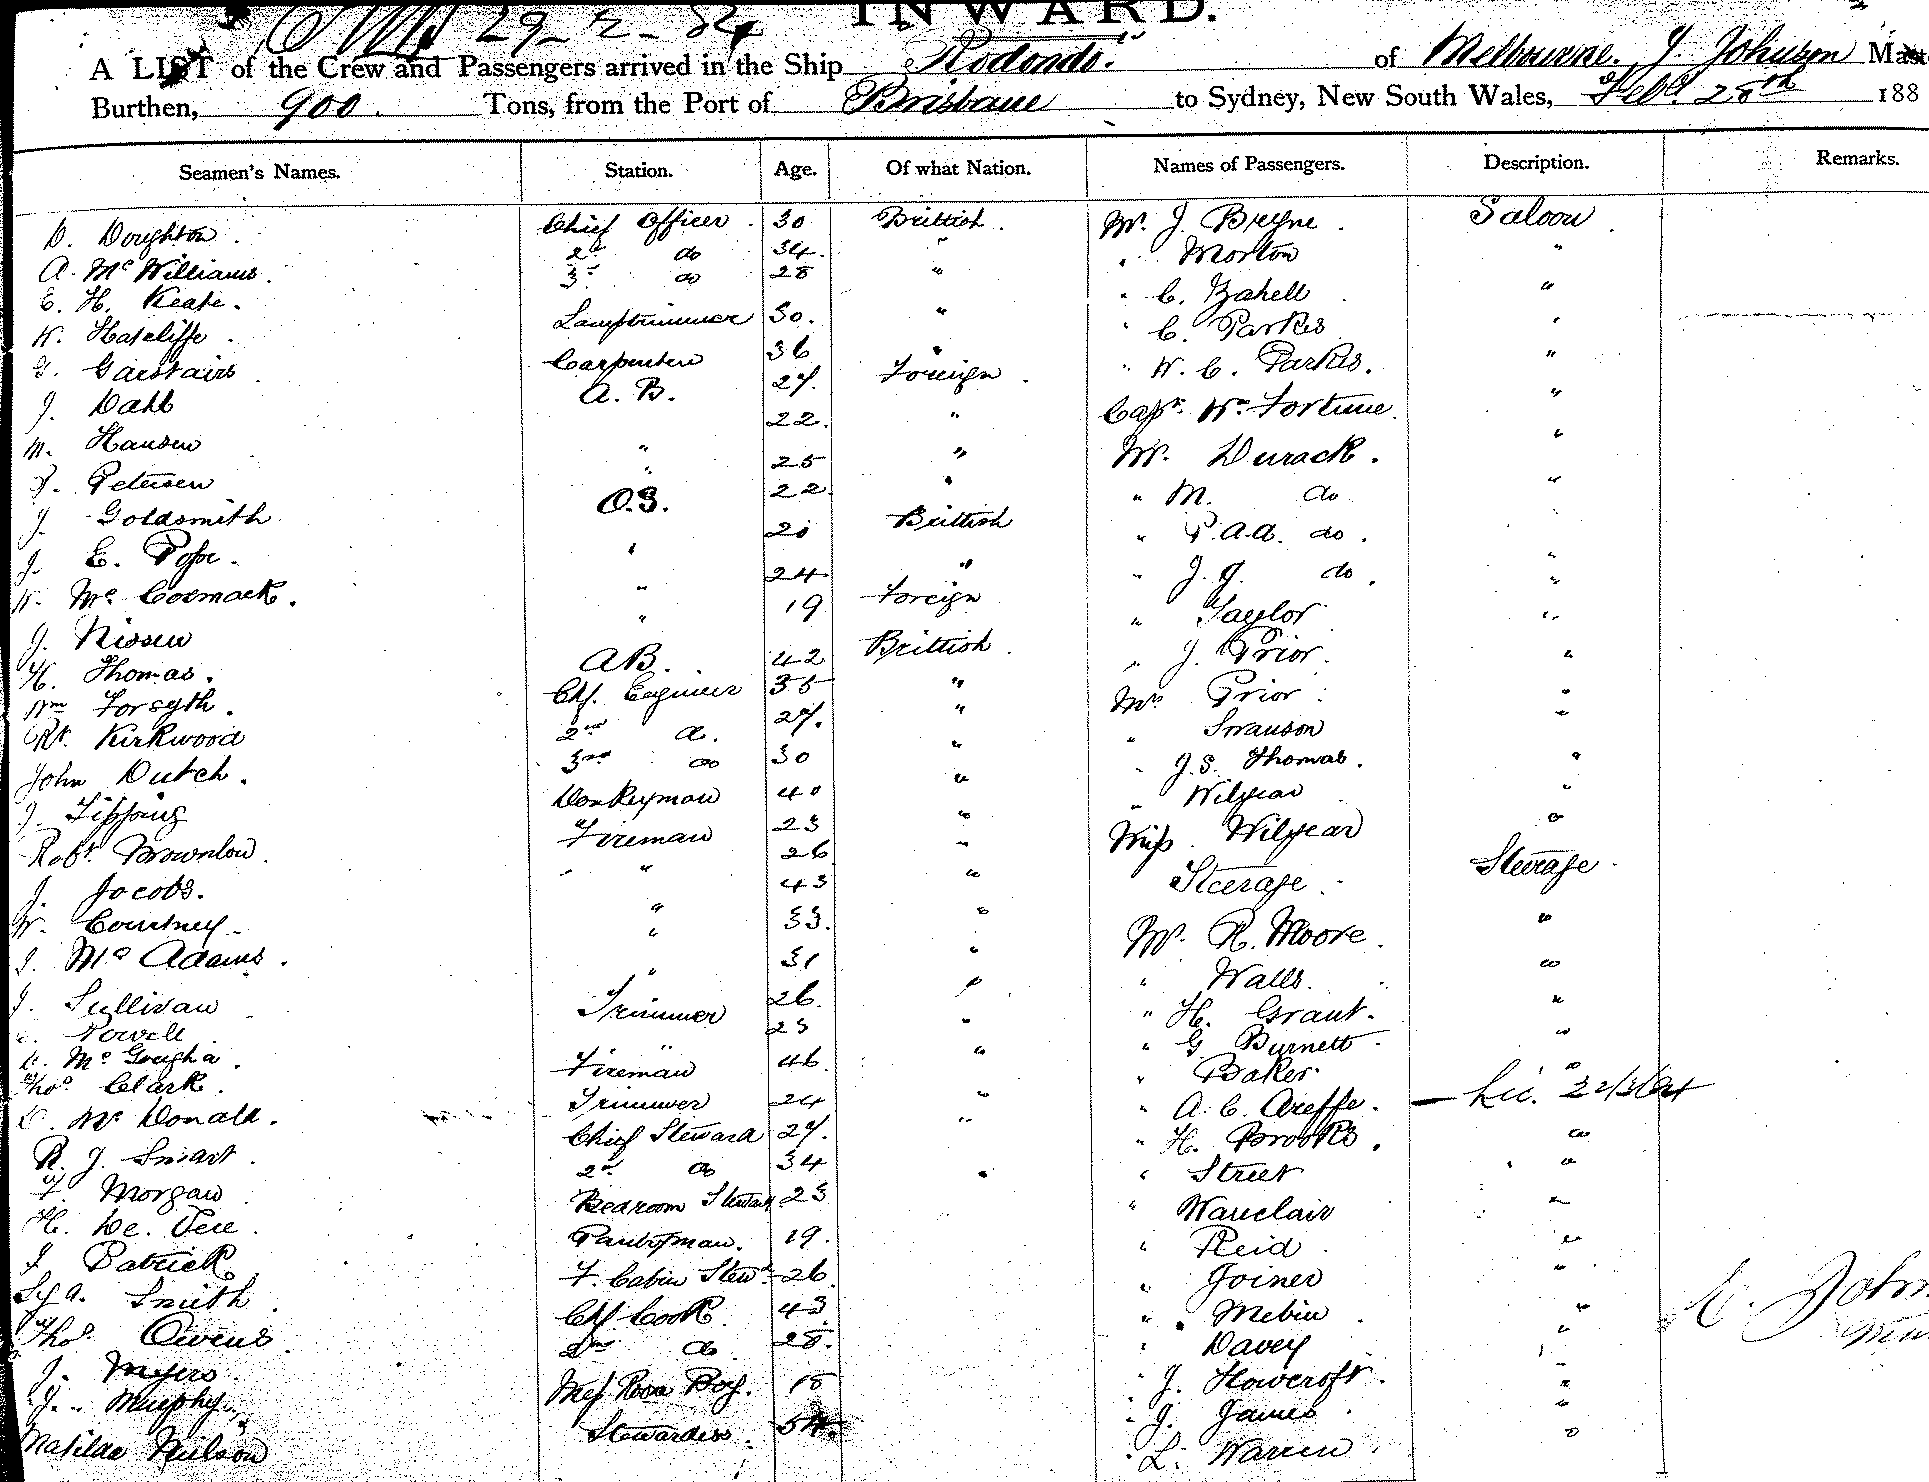 INWARD.
29-2-84
A LIST of the Crew and Passengers arrived in the Ship Rodondo. of Melbourne. J. Johnson Mast
Burthen, 900. Tons, from the Port of Brisbane to Sydney, New South Wales, Feby. 28th 188
Seamen's Names. Station. Age. Of what Nation. Names of Passengers. Description. Remarks.
D. Doughton. Chief Officer. 30 Brittish. Mr. J. Breyne. Saloon
A. McWilliams. 2nd do 34. " " Morton "
E. H. Keate. 3rd do 28 " " C. Zahell "
W. Hatcliffe. Lamptrimmer 30. " " C. Parkes "
G. Garstairs Carpenter 36 " " W. C. Parkes. "
J. Dahl A. B. 27. Foreign. Capt. Wm Fortune. "
M. Hansen 22. " Mr. Durack. "
P. Petersen " 25 " " M. do "
J. Goldsmith " 22 " " P.A.A. do.
J. E. Pope. O.S. 20 Brittish " J. J. do. "
W. McCormack. " 24 " " Taylor "
J. Nissen " 19 Foreign " J. Prior. "
H. Thomas. AB. 42 Brittish. Mrs Prior "
Wm Forsyth. Chf. Engineer 35 " " Swanson "
Rt. Kirkwood 2nd do. 27. " " J. S. Thomas. "
John Dutch. 3rd do 30 " " Wilyear "
J. Tipping Donkeyman 40 " Miss Wilyear "
Robt. Brownlow. Fireman 23 " Steerage. Steerage
J. Jacobs. " 26 " Mr. R. Moore. "
W. Courtney. " 43 " " Walls. "
J. McAdams. " 33. " " H. Grant. "
J. Sullivan " 31 " " G. Burnett. "
Powell Trimmer 26. " " Baker "
" 25 " " A. C. Areffe. —
Thos. Clark. Fireman 46 " " H. Brooks. "
D. McDonald. Trimmer 24 " " Street "
R. J. Smart. Chief Steward 27. " "
F. Morgan 2nd do 34 " " Reid "
H. De. Vere. Bedroom Steward 23 " Joiner "
J. Patrick Pantryman. 19. "
Smith F. Cabin Stewd 26 " Davey "
Thos. Owens Chf Cook. 43 " J. Howcroft. "
J. Myers 2nd do 28. " J. James "
J. Murphy. Mess Room Boy. 18 " L. Warren "
Matilda Neilson Stewardess. 54.